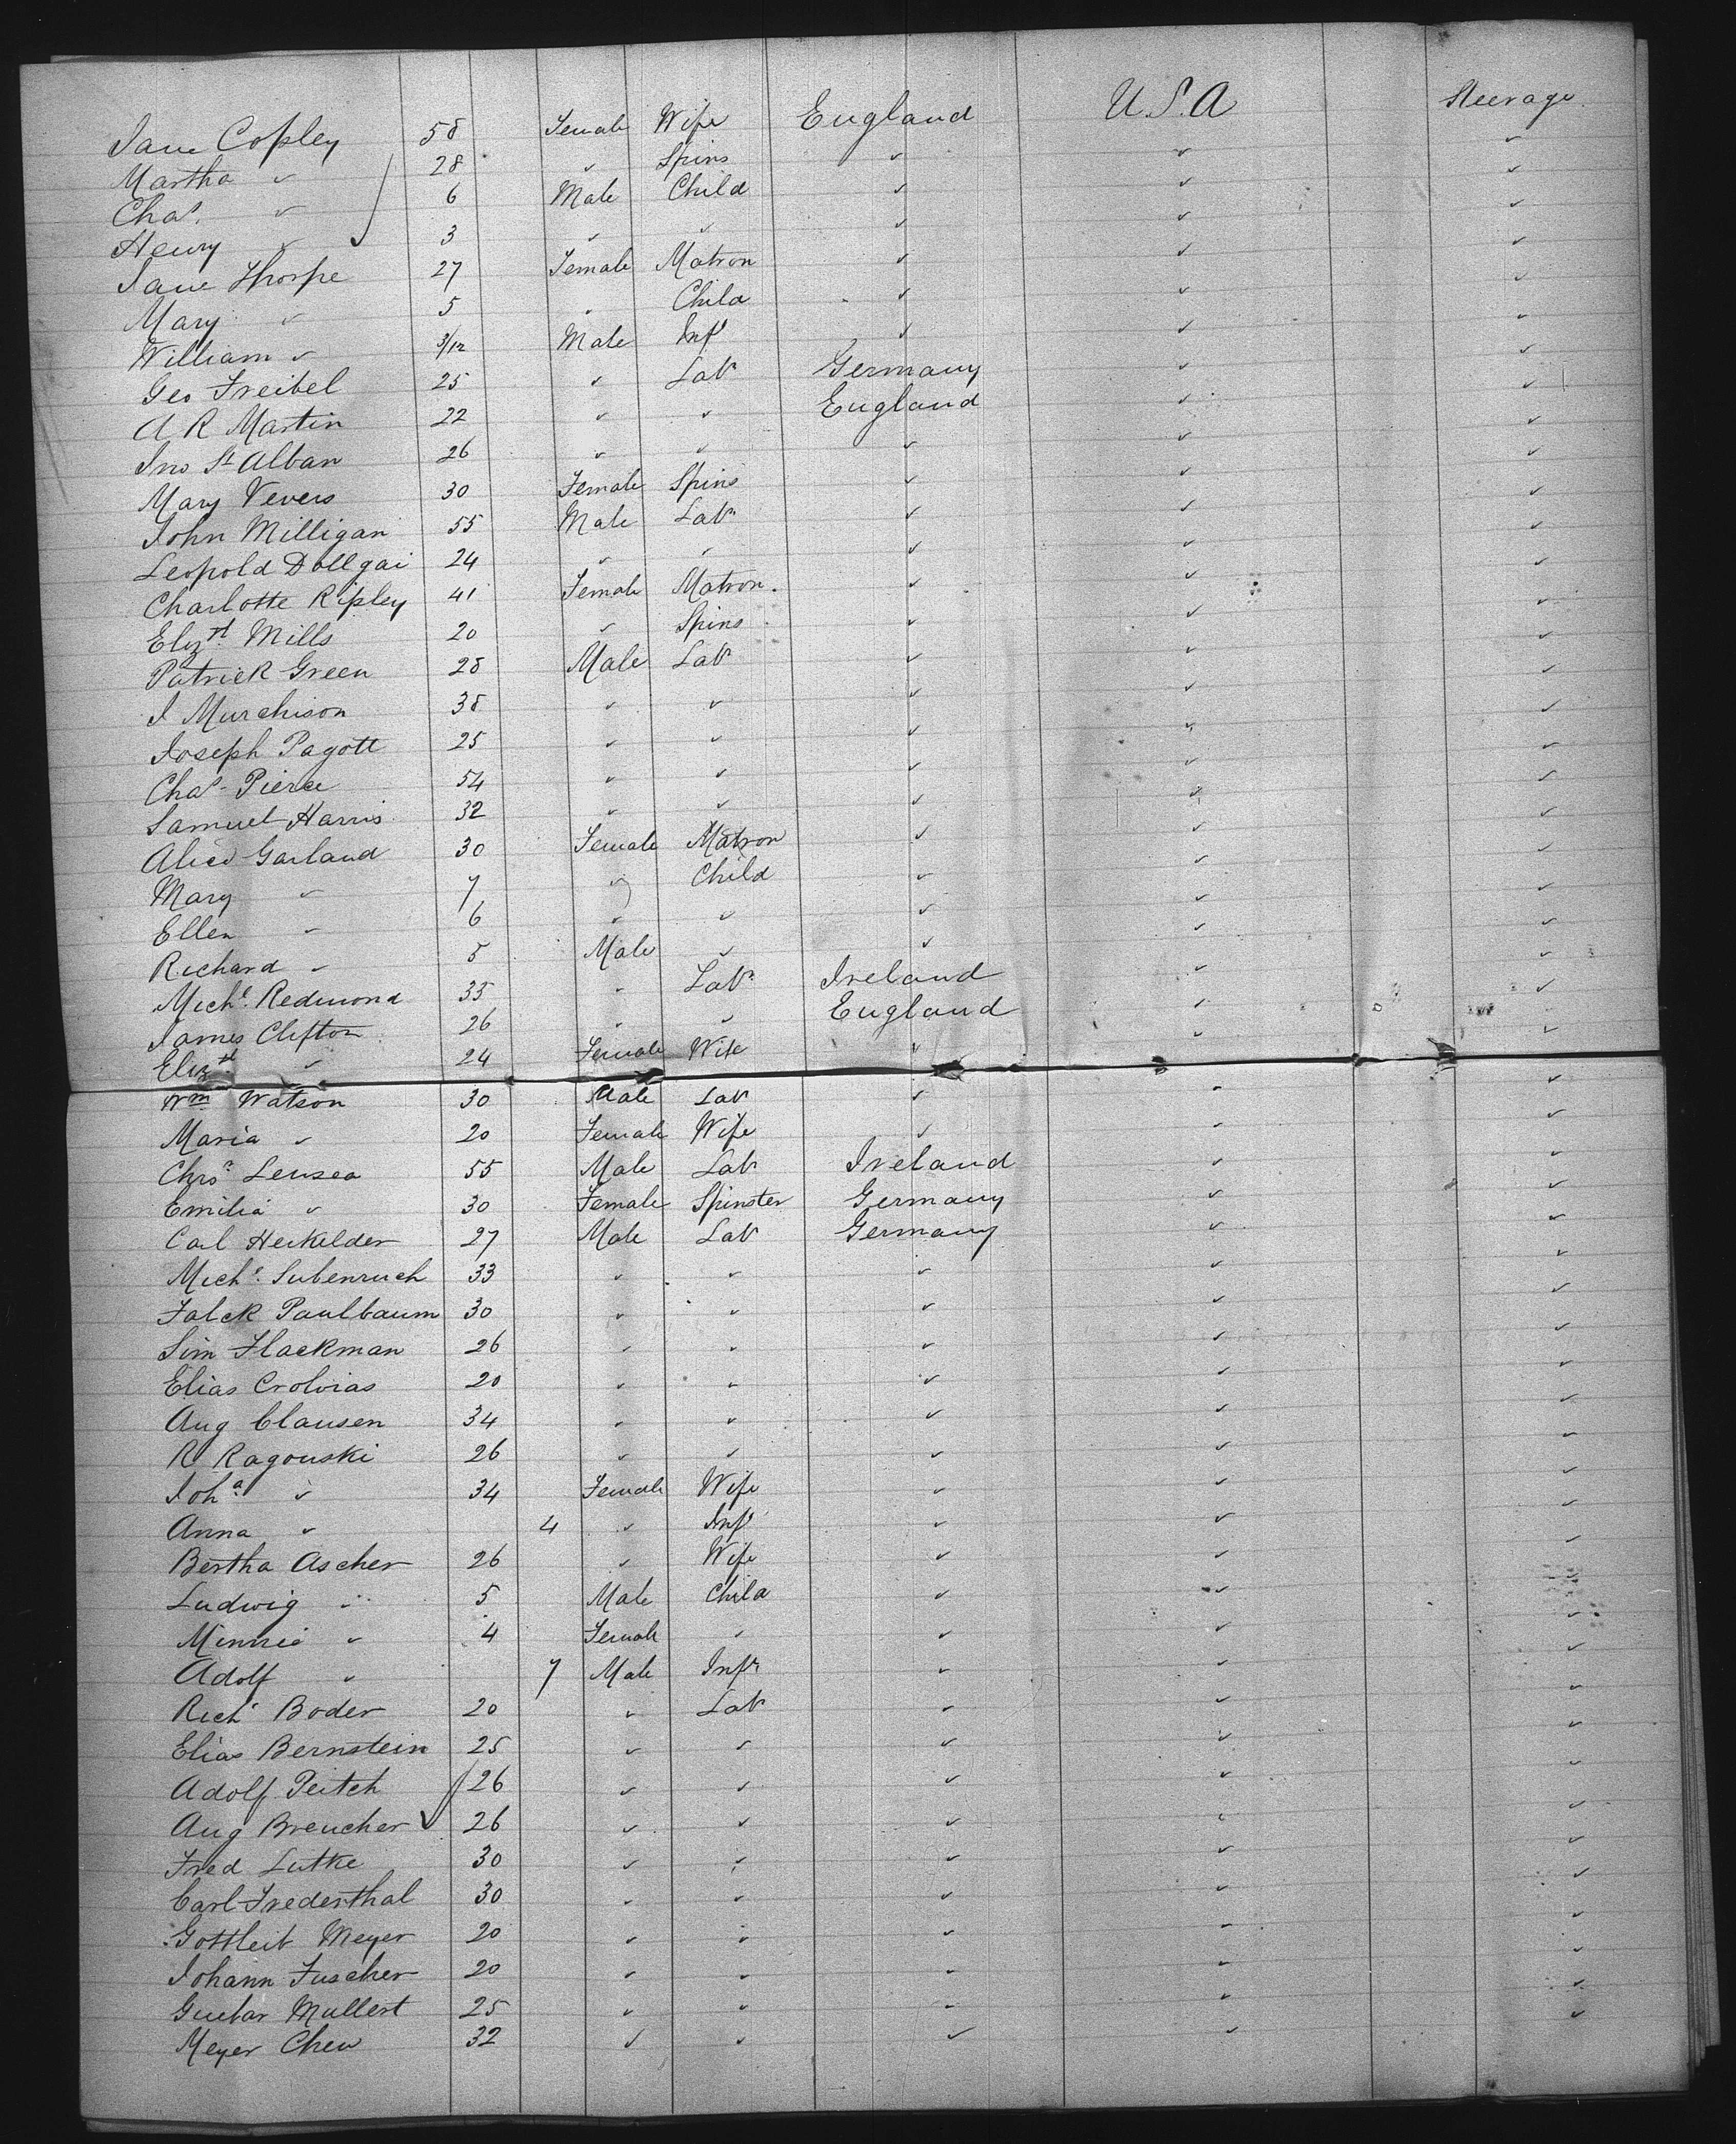 Jane Copley 58 Female Wife England U.S.A Steerage
Martha " 28 " Spins " " "
Chas. " 6 Male Child " " "
Henry " 3 " " " " "
Jane Thorpe 27 Female Matron " " "
Mary " 5 " Child " " "
William " 3/12 Male Inft " " "
Geo Freibel 25 " Labr Germany " "
A R Martin 22 " " England " "
Jno St Alban 26 " " " " "
Mary Vevers 30 Female Spins " " "
John Milligan 55 Male Labr " " "
Leopold Dollgai 24 " " " " "
Charlotte Ripley 41 Female Matron. " " "
Elizth Mills 20 " Spins " " "
Patrick Green 28 Male Labr " " "
J Murchison 38 " " " " "
Joseph Pagott 25 " " " " "
Chas. Pierce 54 " " " " "
Samuel Harris 32 " " " " "
Alice Garland 30 Female Matron " " "
Mary " 7 " Child " " "
Ellen " 6 " " " " "
Richard " 5 Male " " " "
Michl. Redmond 35 " Labr Ireland " "
James Clifton 26 " " England " "
Elizth. " 24 Female Wife " " "
Wm Watson 30 Male Labr " " "
Maria " 20 Female Wife " " "
Chrs. Lensea 55 Male Labr Ireland " "
Emilia " 30 Female Spinster Germany " "
Carl Heikelder 27 Male Labr Germany " "
Michl. Subenruch 33 " " " " "
Falck Paulbaum 30 " " " " "
Sim Flackman 26 " " " " "
Elias Crolvias 20 " " " " "
Aug Clausen 34 " " " " "
R Ragouski 26 " " " " "
Joha. " 34 Female Wife " " "
Anna " 4 " Inft " " "
Bertha Ascher 26 " Wife " " "
Ludwig " 5 Male Child " " "
Minnie " 4 Female " " " "
Adolf " 7 Male Inft " " "
Richd Boder 20 " Labr " " "
Elias Bernstein 25 " " " " "
Adolf Peitch 26 " " " " "
Aug Breucher 26 " " " " "
Fred Lutke 30 " " " " "
Carl Frederthal 30 " " " " "
Gottleib Meyer 20 " " " " "
Johann Fuscher 20 " " " " "
Gustav Mullert 25 " " " " "
Meyer Chew 32 " " " " "